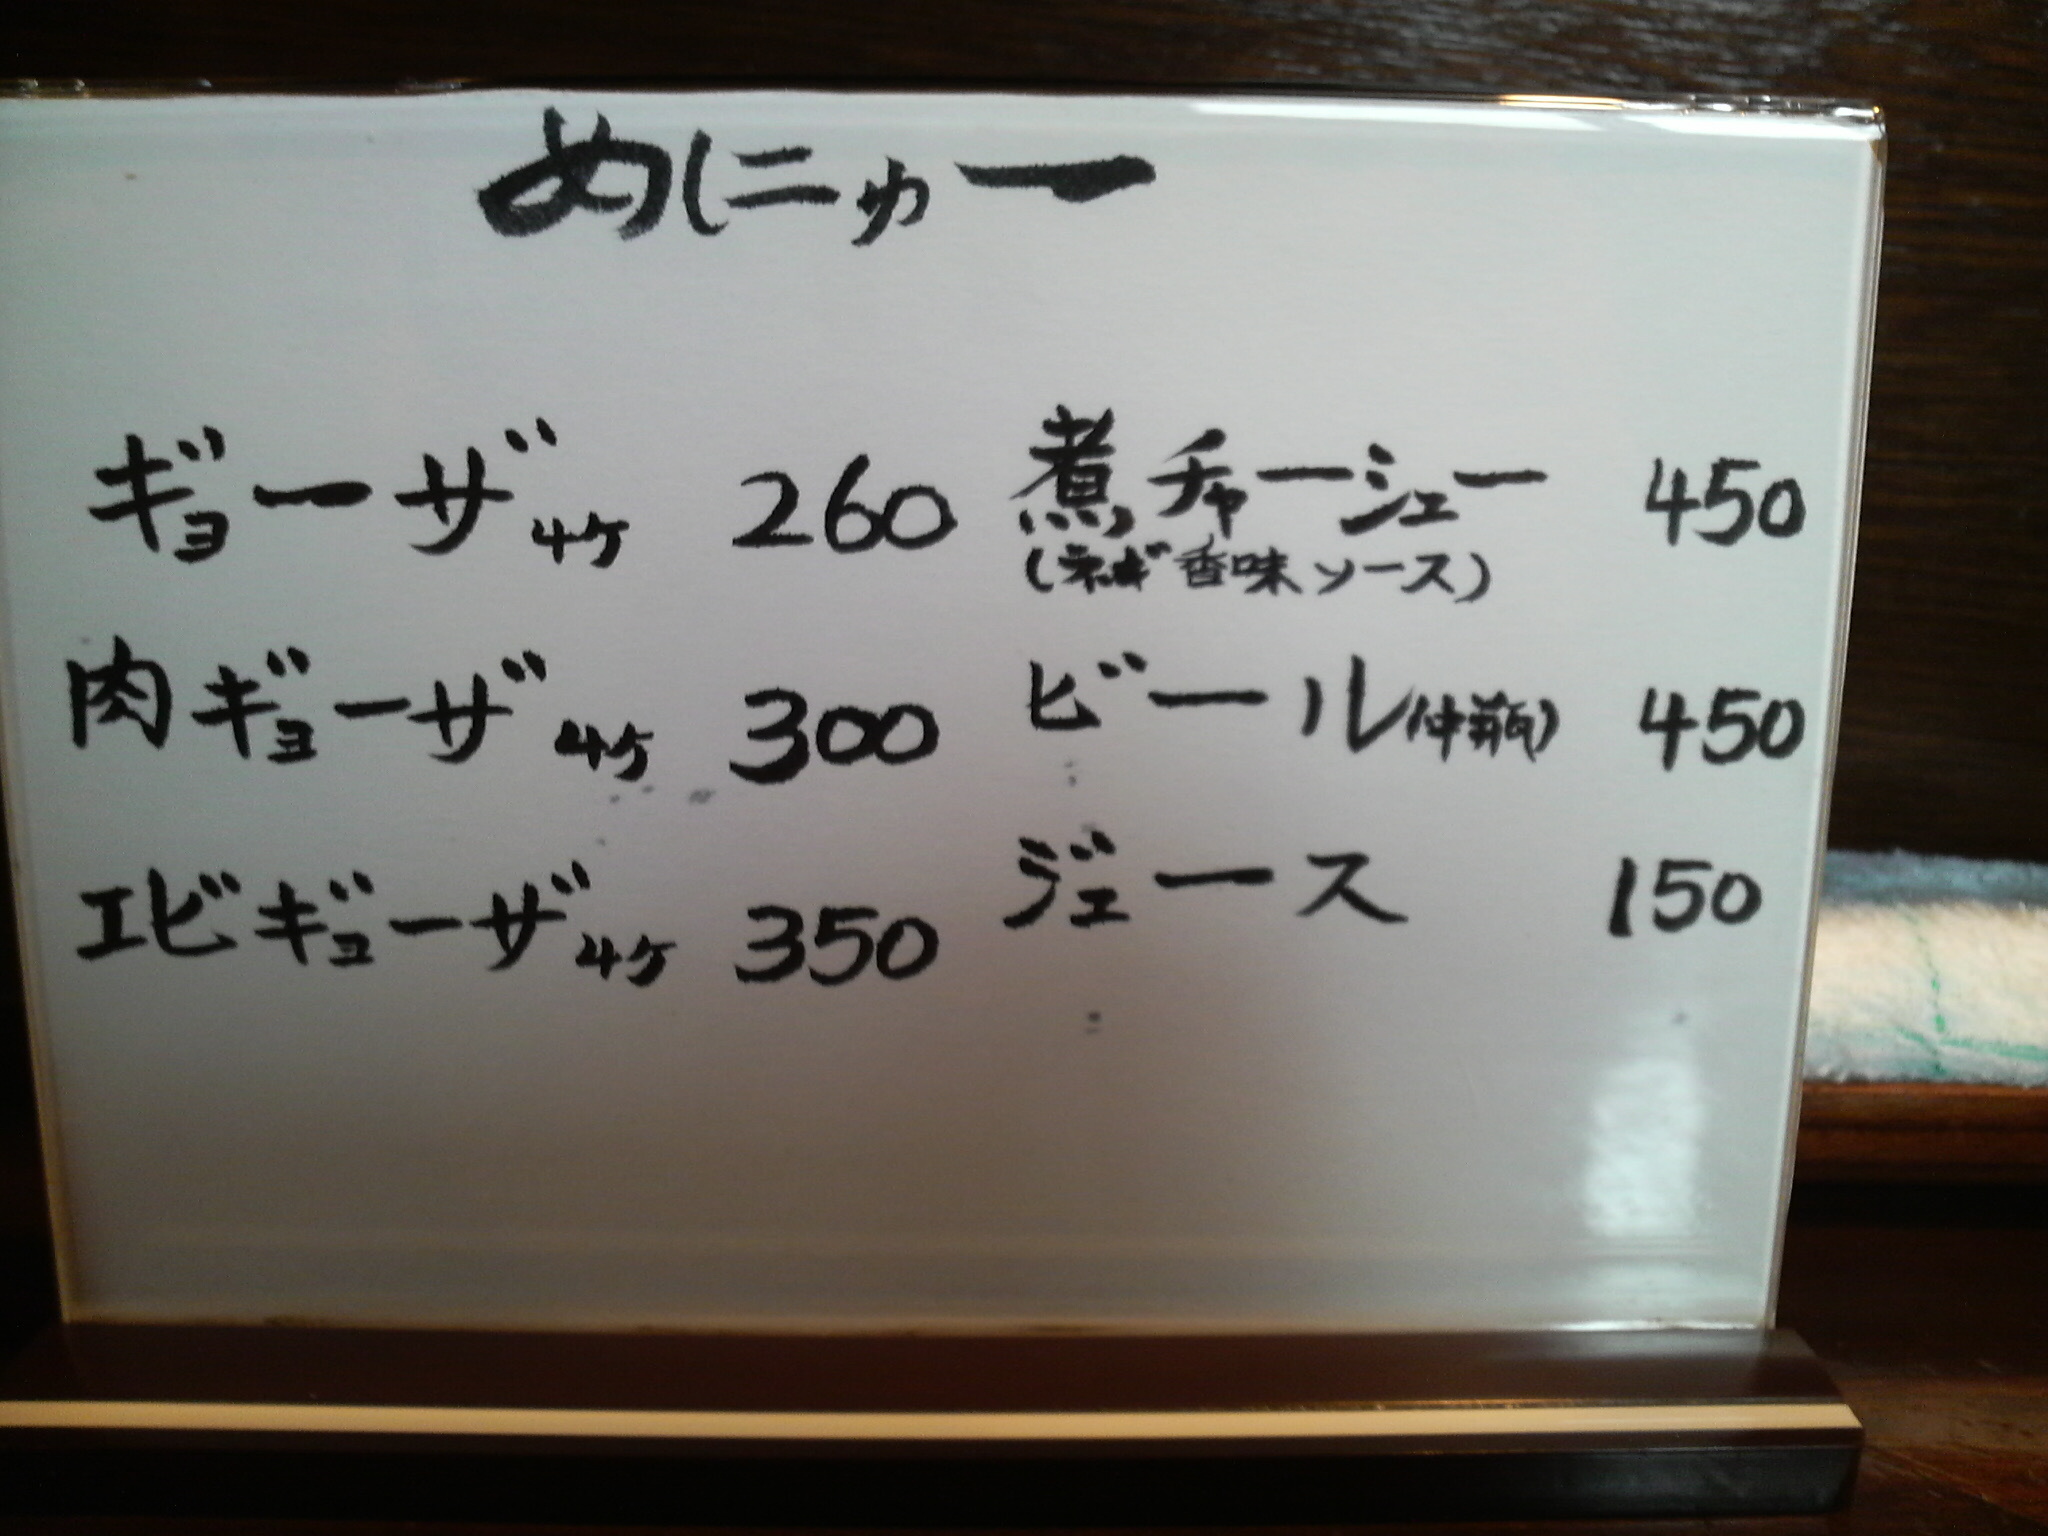 めにゅー
ギョーザ 4ケ 260
肉ギョーザ 4ケ 300
エビギョーザ 4ケ 350
煮チャーシュー 450
(ネギ香味ソース)
ビール(中瓶) 450
ジュース 150